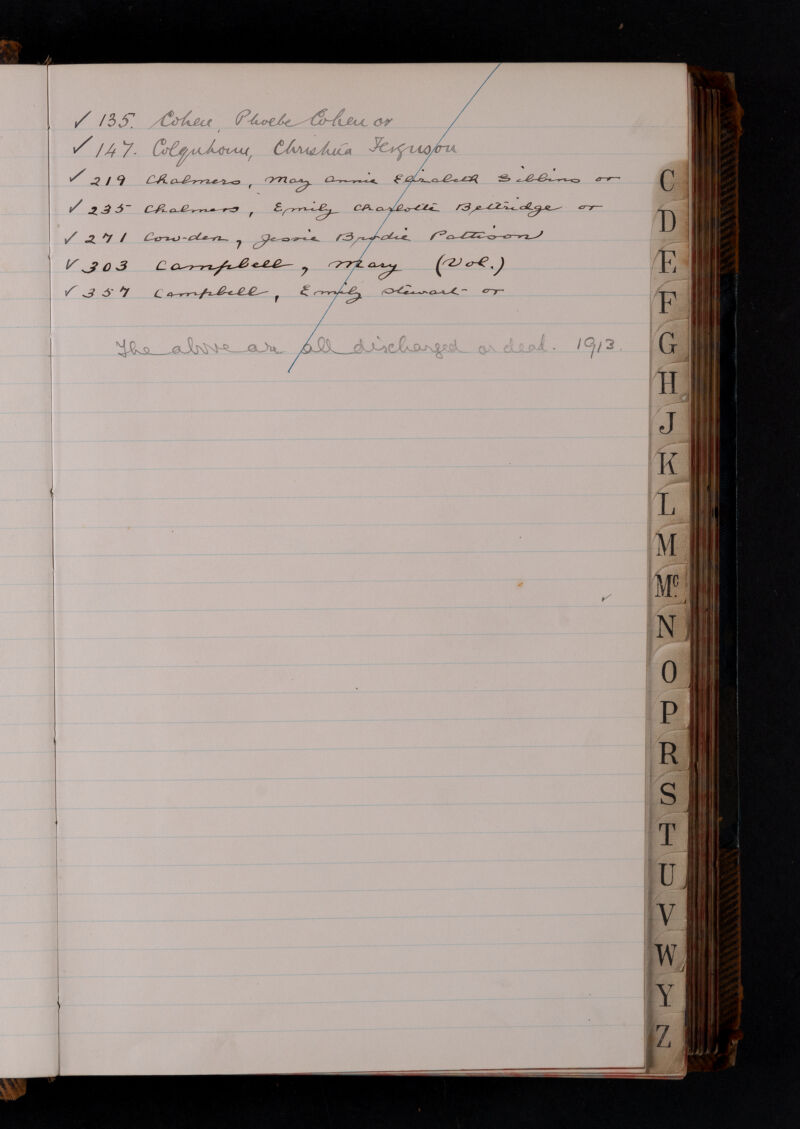 ✓ 135. Cohen, Phoebe Cohen or
✓ 147. Colquhoun, Christina Ferguson
✓ 219 Chalmers, Mary Annie Elizabeth Sibbins or
✓ 235 Chalmers, Emily Charlotte Bettridge or
✓ 271 Cowden, Jessie Brodie Pattison
✓ 303 Campbell, Mary (Vol.)
✓ 357 Campbell, Emily Stewart or
The above are all discharged or dead. 1913.
C
D
E
F
G
H
J
K
L
M
Mc
N
O
P
R
S
T
U
V
W
Y
Z